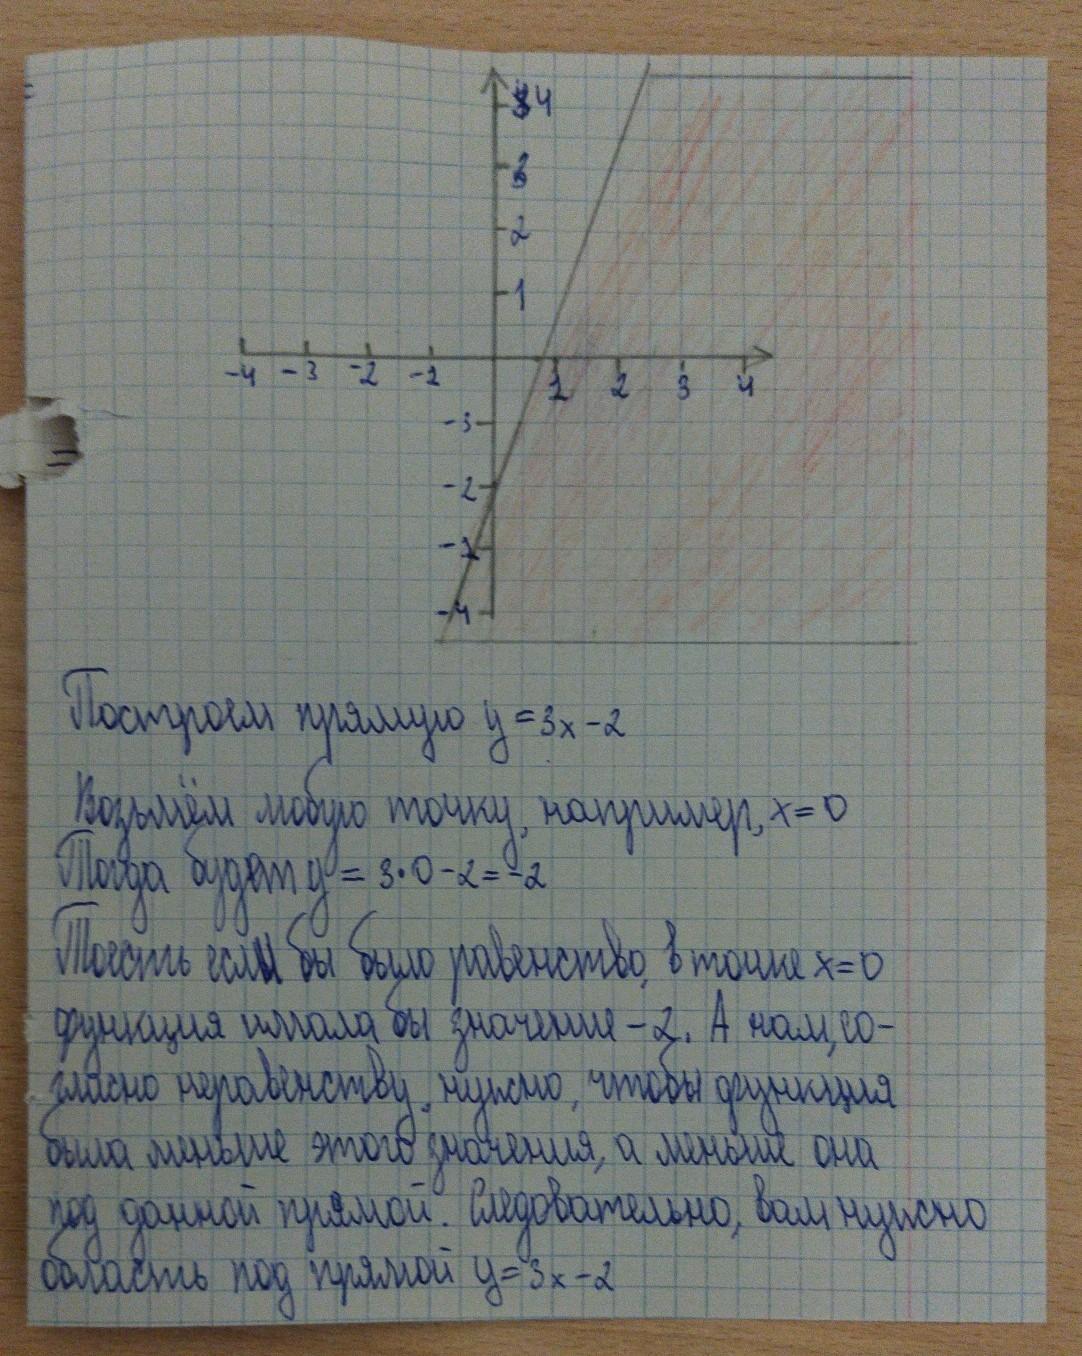 4
3
2
1
-4 -3 -2 -1
1 2 3 4
-3
-2
-1
-4
Построем прямую y=3x-2
Возьмём любую точку, например, x=0
Тогда будет y = 3·0-2=-2
Тоесть если бы было равенство, в точке x=0
функция имала бы значение -2. А нам, со-
гласно неравенству, нужно, чтобы функция
была меньше этого значения, а меньше она
под данной прямой. Следовательно, вам нужно
область под прямой y=3x-2